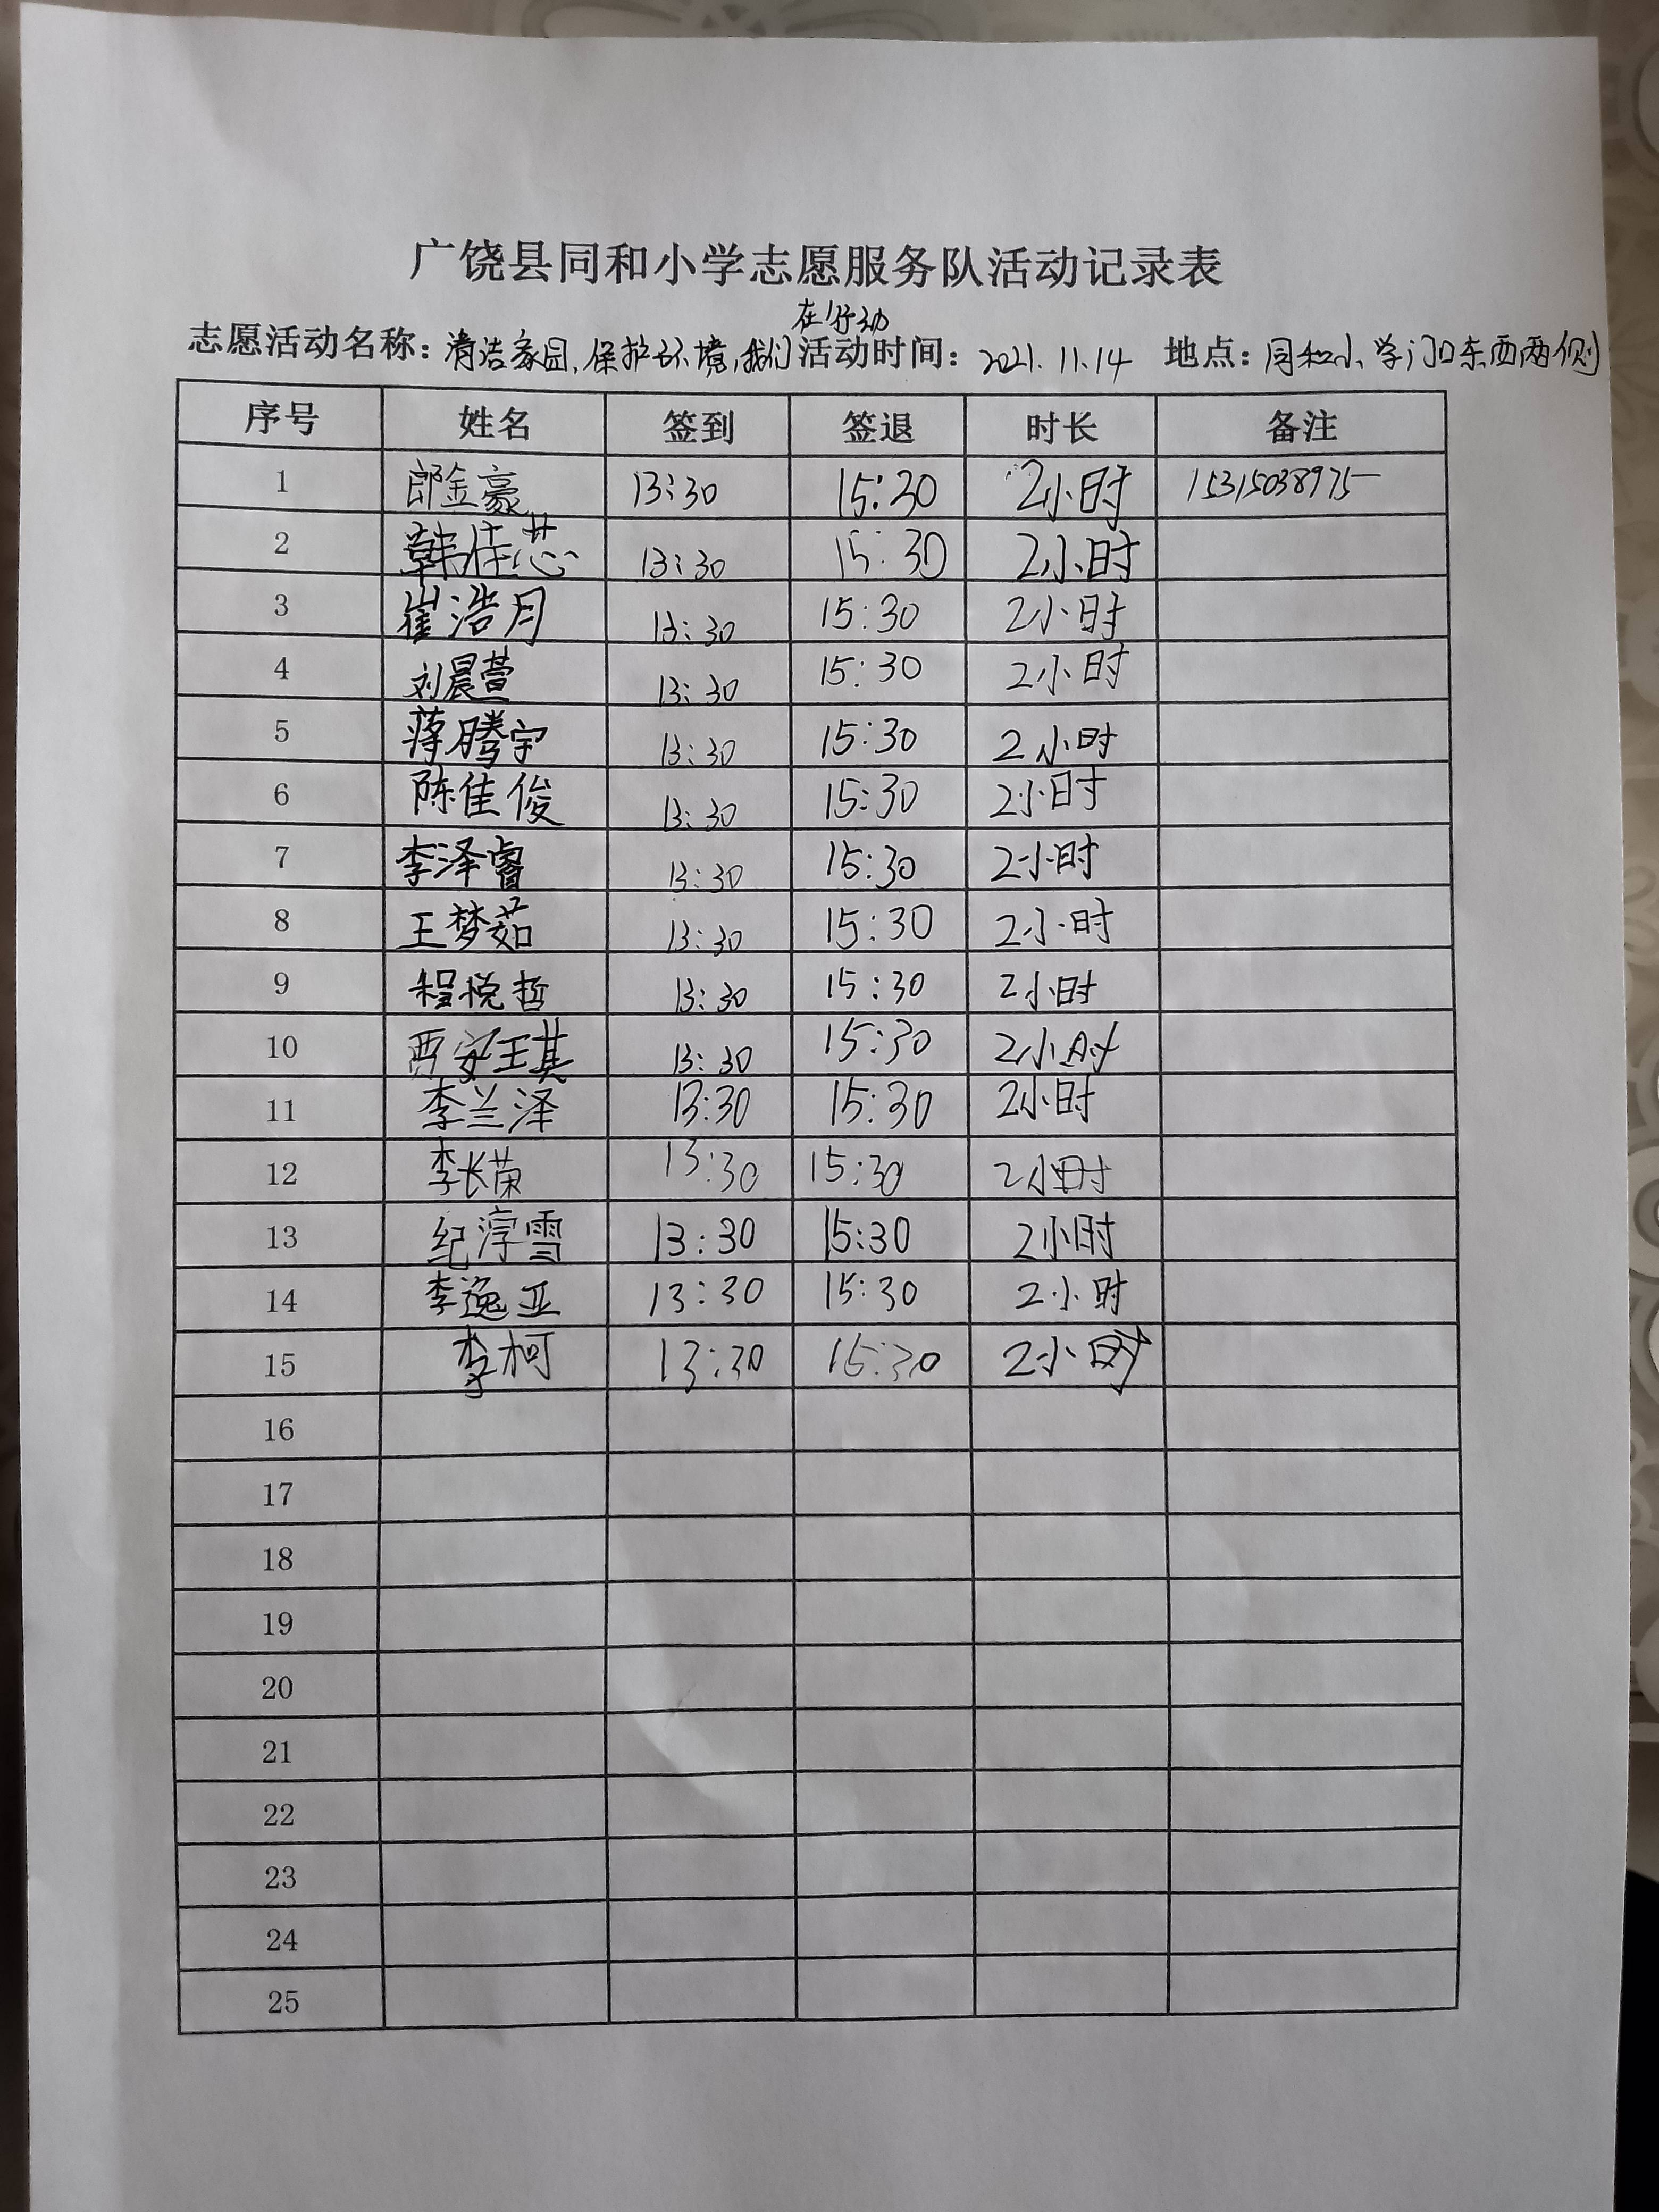 广饶县同和小学志愿服务队活动记录表
在行动
志愿活动名称：清洁家园,保护环境,我们 活动时间：2021.11.14 地点：同和小学门口东西两侧
序号 姓名 签到 签退 时长 备注
1 郎金豪 13:30 15:30 2小时 15315038975
2 韩佳芯 13:30 15:30 2小时
3 崔浩月 13:30 15:30 2小时
4 刘晨萱 13:30 15:30 2小时
5 蒋腾宇 13:30 15:30 2小时
6 陈佳俊 13:30 15:30 2小时
7 李泽睿 13:30 15:30 2小时
8 王梦茹 13:30 15:30 2小时
9 程悦哲 13:30 15:30 2小时
10 贾安琪 13:30 15:30 2小时
11 李兰泽 13:30 15:30 2小时
12 李长荣 13:30 15:30 2小时
13 纪淳雪 13:30 15:30 2小时
14 李逸亚 13:30 15:30 2小时
15 李柯 13:30 15:30 2小时
16
17
18
19
20
21
22
23
24
25